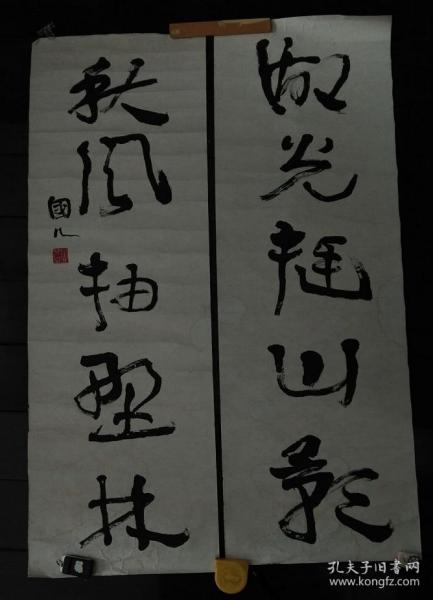 湖光山影
秋風抽林
國
孔夫子旧书网
www.kongfz.com